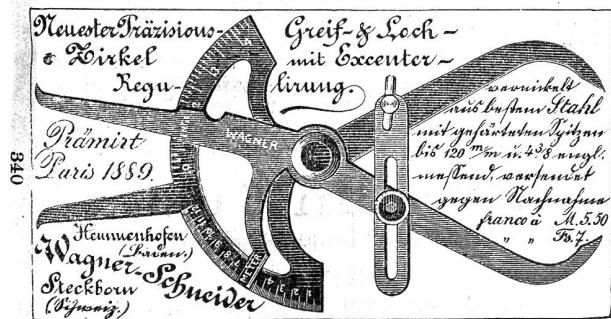 Neuester Präzisions-
Greif- & Loch-
Zirkel
mit Excenter-
Regu-
lirung.
WAGNER
METER
Prämirt
Paris 1889.
vernickelt
aus beßtem Stahl
mit gehärteten Spitzen
bis 120 m/m u. 4 3/8 engl.
messend, versendet
gegen Nachnahme
franco à M. 5.50
" " Fs. 7.
Hemmenhofen
(Baden.)
Wagner-Schneider
Steckborn
(Schweiz.)
840